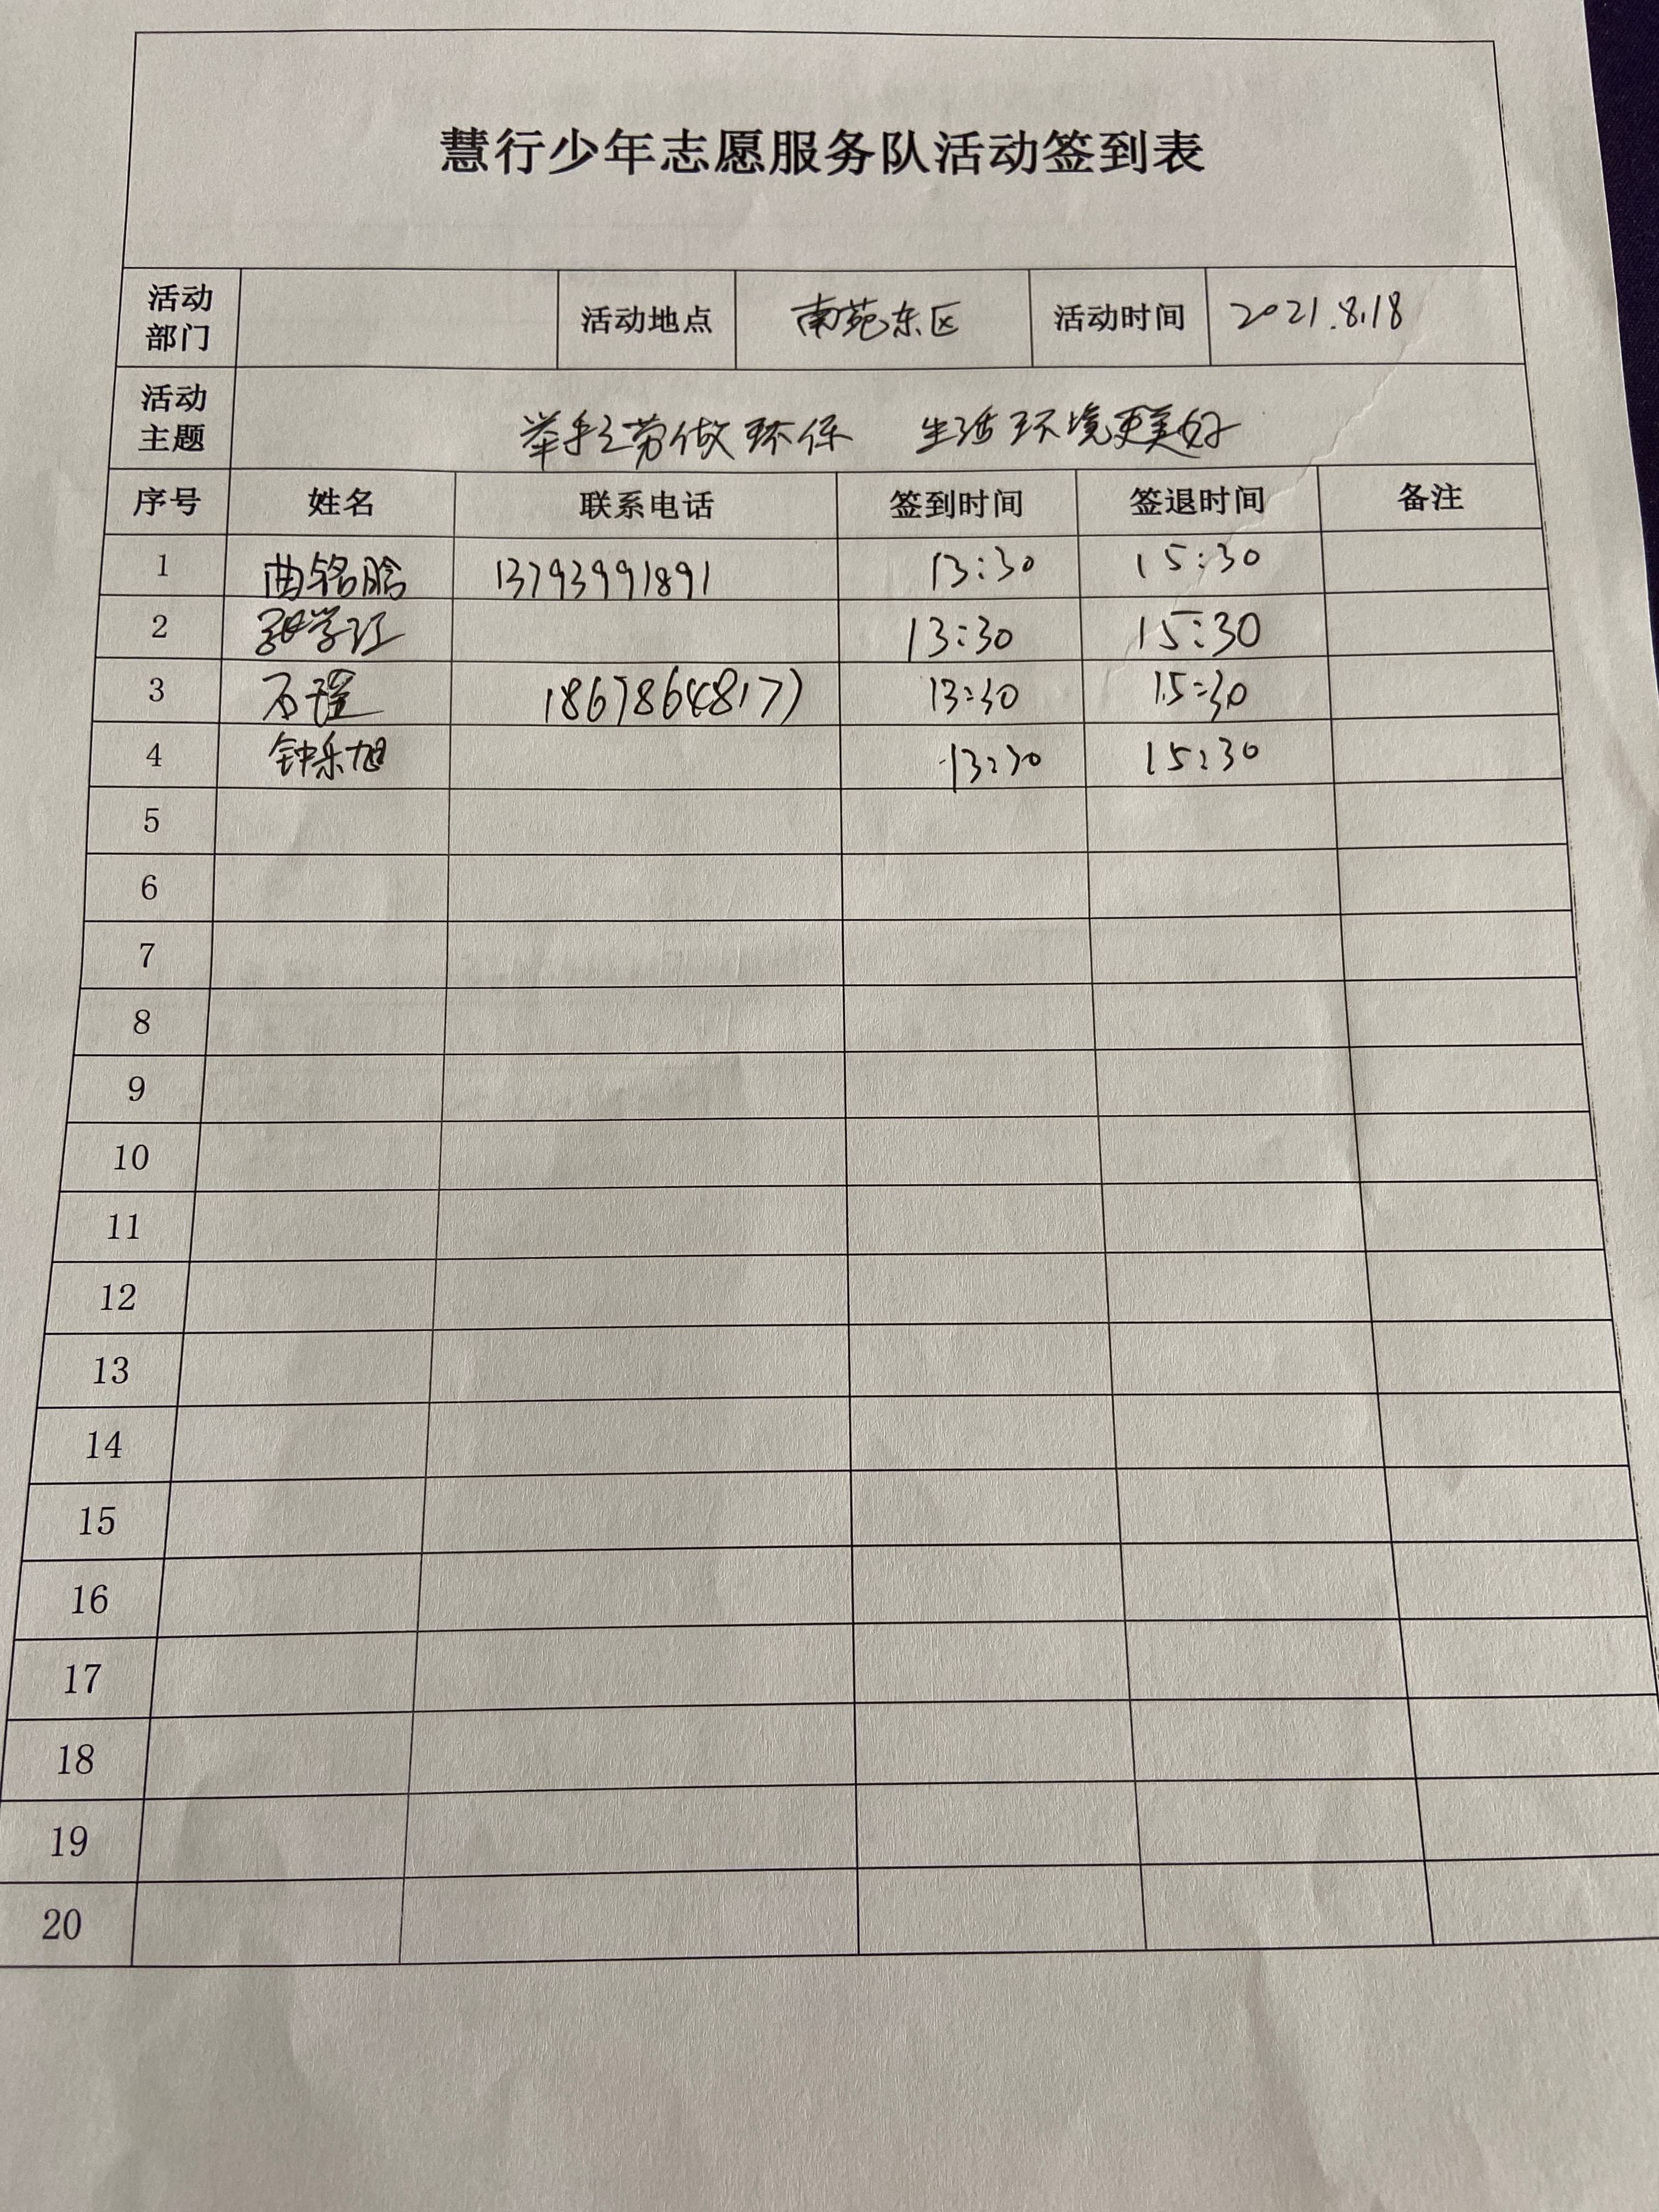 慧行少年志愿服务队活动签到表
活动部门 活动地点 南苑东区 活动时间 2021.8.18
活动主题 举手之劳做环保 生活环境更美好
序号 姓名 联系电话 签到时间 签退时间 备注
1 曲铭晗 13793991891 13:30 15:30
2 13:30 15:30
3 石瑶 13:30 15:30
4 钟乐旭 13:30 15:30
5
6
7
8
9
10
11
12
13
14
15
16
17
18
19
20